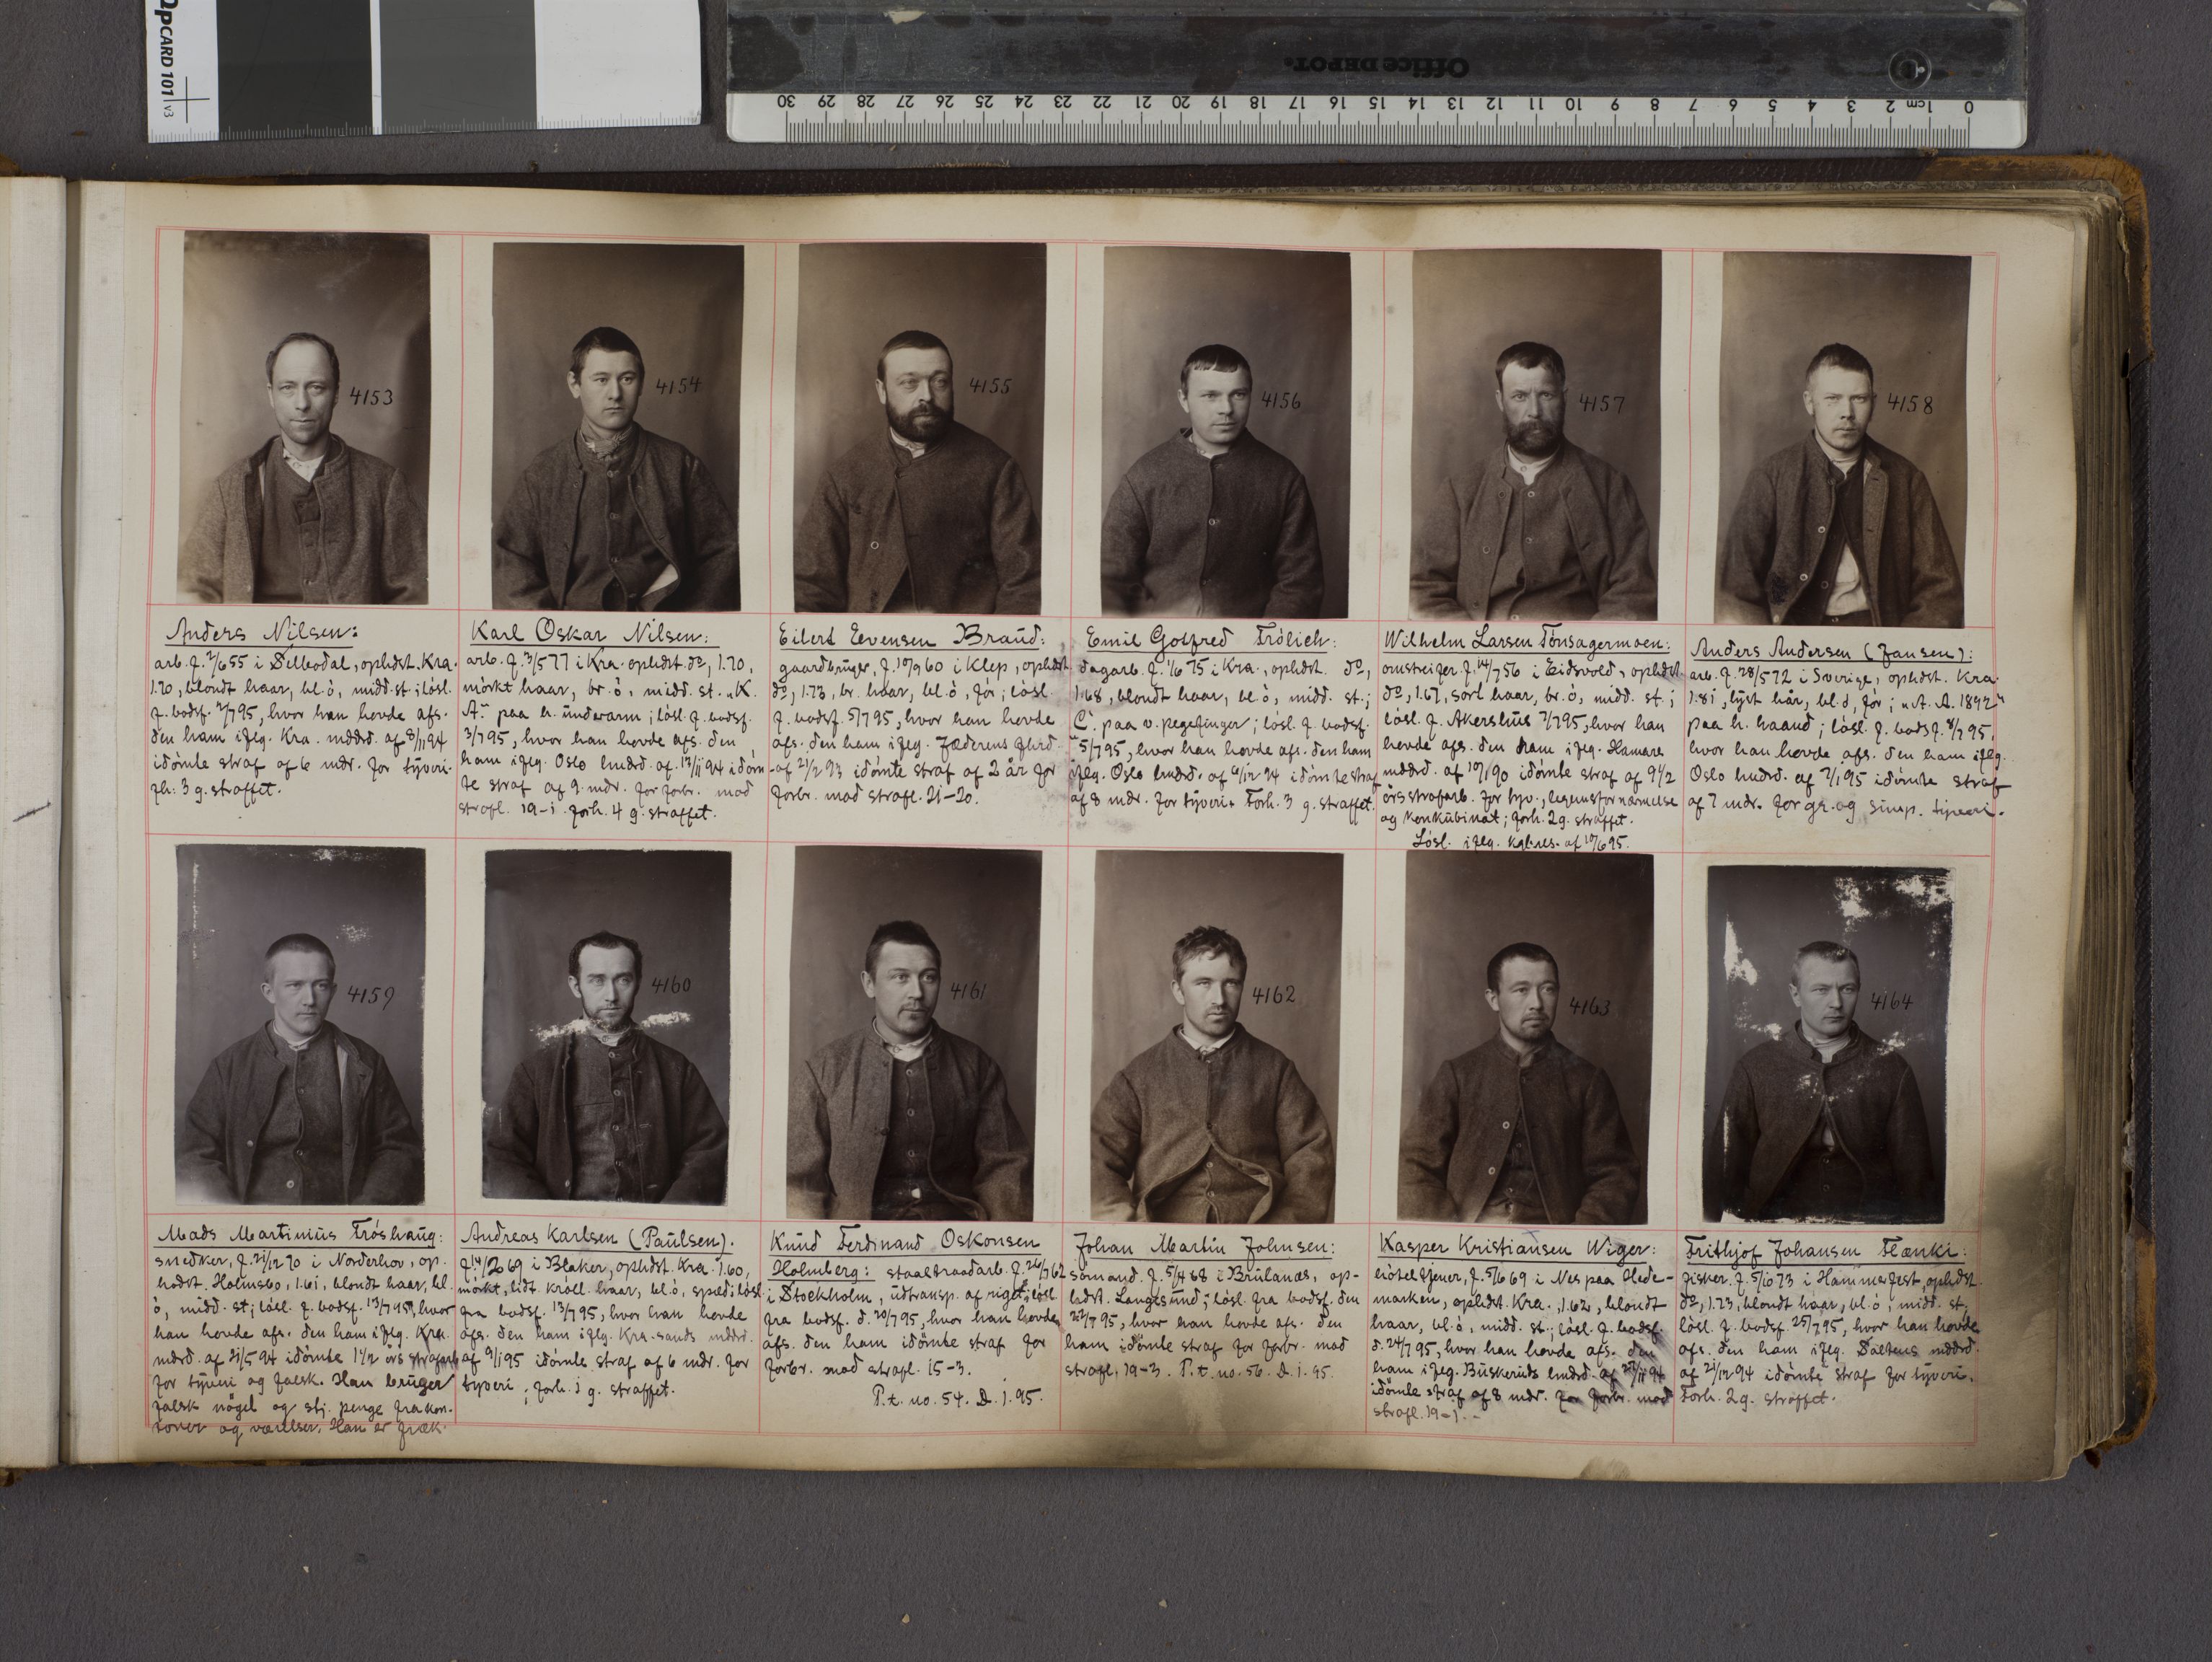 OpCARD 101 v3
Office DEPOT
30 29 28 27 26 25 24 23 22 21 20 19 18 17 16 15 14 13 12 11 10 9 8 7 6 5 4 3 2 1 cm 0
4153
Anders Nilsen:
arb. f. 2/6 55 i Silbodal, ophdst. Kra.
1.70, blondt haar, bl. ö, midd. st; lösl.
f. bodsf. 2/7 95, hvor han hevde afs.
den ham iflg. Kra. mddrd. af 8/11 94
idömte straf af 6 mdr. for tyveri.
fh: 3 g. straffet.
4154
Karl Oskar Nilsen:
arb. f. 3/5 77 i Kra. ophdst. do, 1.70,
mörkt haar, br. ö, midd. st. „K.
A." paa h. underarm; lösl. f. bodsf.
3/7 95, hvor han hevde afs. den
ham iflg. Oslo lmdrd. af 13/11 94 idöm
te straf af 9 mdr. for forbr. mod
strafl. 19-1. forh. 4 g. straffet.
4155
Eilert Eevensen Braud:
gaardbruger, f. 10/9 60 i Klep, ophdst.
do, 1.73, br. haar, bl. ö, för; lösl.
f. bodsf. 5/7 95, hvor han hevde
afs. den ham iflg. Jæderens
af 21/2 93 idömte straf af 2 år for
forbr. mod strafl. 21-20.
4156
Emil Gotfred Frölich:
dagarb. f. 1/6 75 i Kra., ophdst. do,
1.68, blondt haar, bl. ö, midd. st.;
C. paa v. pegefinger; lösl. f. bodsf.
5/7 95, hvor han hevde afs. den ham
iflg. Oslo lmdrd. af 6/12 94 idömte straf
af 8 mdr. for tyveri. Forh. 3 g. straffet.
4157
Wilhelm Larsen Tönsagermoen:
omstreifer f. 14/7 56 i Eidsvold, ophdst.
do, 1.67, sort haar, br. ö, midd. st.;
lösl. f. Akershus 7/7 95, hvor han
hevde afs. den ham iflg. Hamars
mddrd. af 10/1 90 idömte straf af 9 1/2
års strafarb. for tyv., legemsfornærmelse
og konkubinat; forh. 2 g. straffet.
Lösl. iflg. kgl. res. af 10/6 95.
4158
Anders Andersen (Jansen):
arb. f. 28/5 72 i Sverige, ophdst. Kra.
1.81, lyst hår, bl. ö, för; „A. A. 1892"
paa h. haand; lösl. f. bodsf. 8/7 95,
hvor han hevde afs. den ham iflg.
Oslo lmdrd. af 7/1 95 idömte straf
af 7 mdr. for gr. og simp. tyveri.
4159
Mads Martinius Fröshaug:
snedker, f. 21/12 70 i Norderhov, op-
hodst. Holmsbo, 1.61, blondt haar, bl.
ö, midd. st; lösl. f. bodsf. 13/7 95, hvor
han hevde afs. den ham iflg. Kra.
mdrd. af 21/5 94 idömte 1 1/2 års strafarb
for tyveri og falsk. Han bruger
falsk nögel og stj. penge fra kon-
torer og værelser. Han er fræk.
4160
Andreas Karlsen (Paulsen).
f. 14/2 69 i Blaker, ophdst. Kra. 1.60,
mörkt, lidt kröll. haar, bl. ö, spæd; lösl.
fra bodsf. 13/7 95, hvor han hevde
afs. den ham iflg. Kra.-sands mddrd.
af 9/1 95 idömte straf af 6 mdr. for
tyveri; forh. 1 g. straffet.
4161
Knud Ferdinand Oskonsen
Holmberg: staaltraadarb. f. 26/7 62
i Stockholm, udtransp. af riget; lösl.
fra bodsf. d. 20/7 95, hvor han hevde
afs. den ham idömte straf for
forbr. mod strafl. 15-3.
P.t. no. 54. D. 1. 95.
4162
Johan Martin Johnsen:
sömand f. 5/4 68 i Brulanæs, op-
hdst. Langesund; lösl. fra bodsf. den
22/7 95, hvor han hevde afs. den
ham idömte straf for forbr. mod
strafl. 19-3. P.t. no. 56. D. 1. 95.
4163
Kasper Kristiansen Wiger:
hötel tjener, f. 5/6 69 i Nes paa Hede-
marken, ophdst. Kra., 1.62, blondt
haar, bl. ö, midd. st.; lösl. f. bodsf.
d. 24/7 95, hvor han hevde afs. den
ham iflg. Buskeruds lmdrd. af 27/11 94
idömte straf af 8 mdr. for forbr. mod
strafl. 19-1.
4164
Frithjof Johansen Flænki:
fisker f. 5/10 73 i Hammerfest, ophdst.
do, 1.73, blondt haar, bl. ö; midd. st.
lösl. f. bodsf. 25/7 95, hvor han hevde
afs. den ham iflg. Saltens mddrd.
af 21/12 94 idömte straf for tyveri.
Forh. 2 g. straffet.